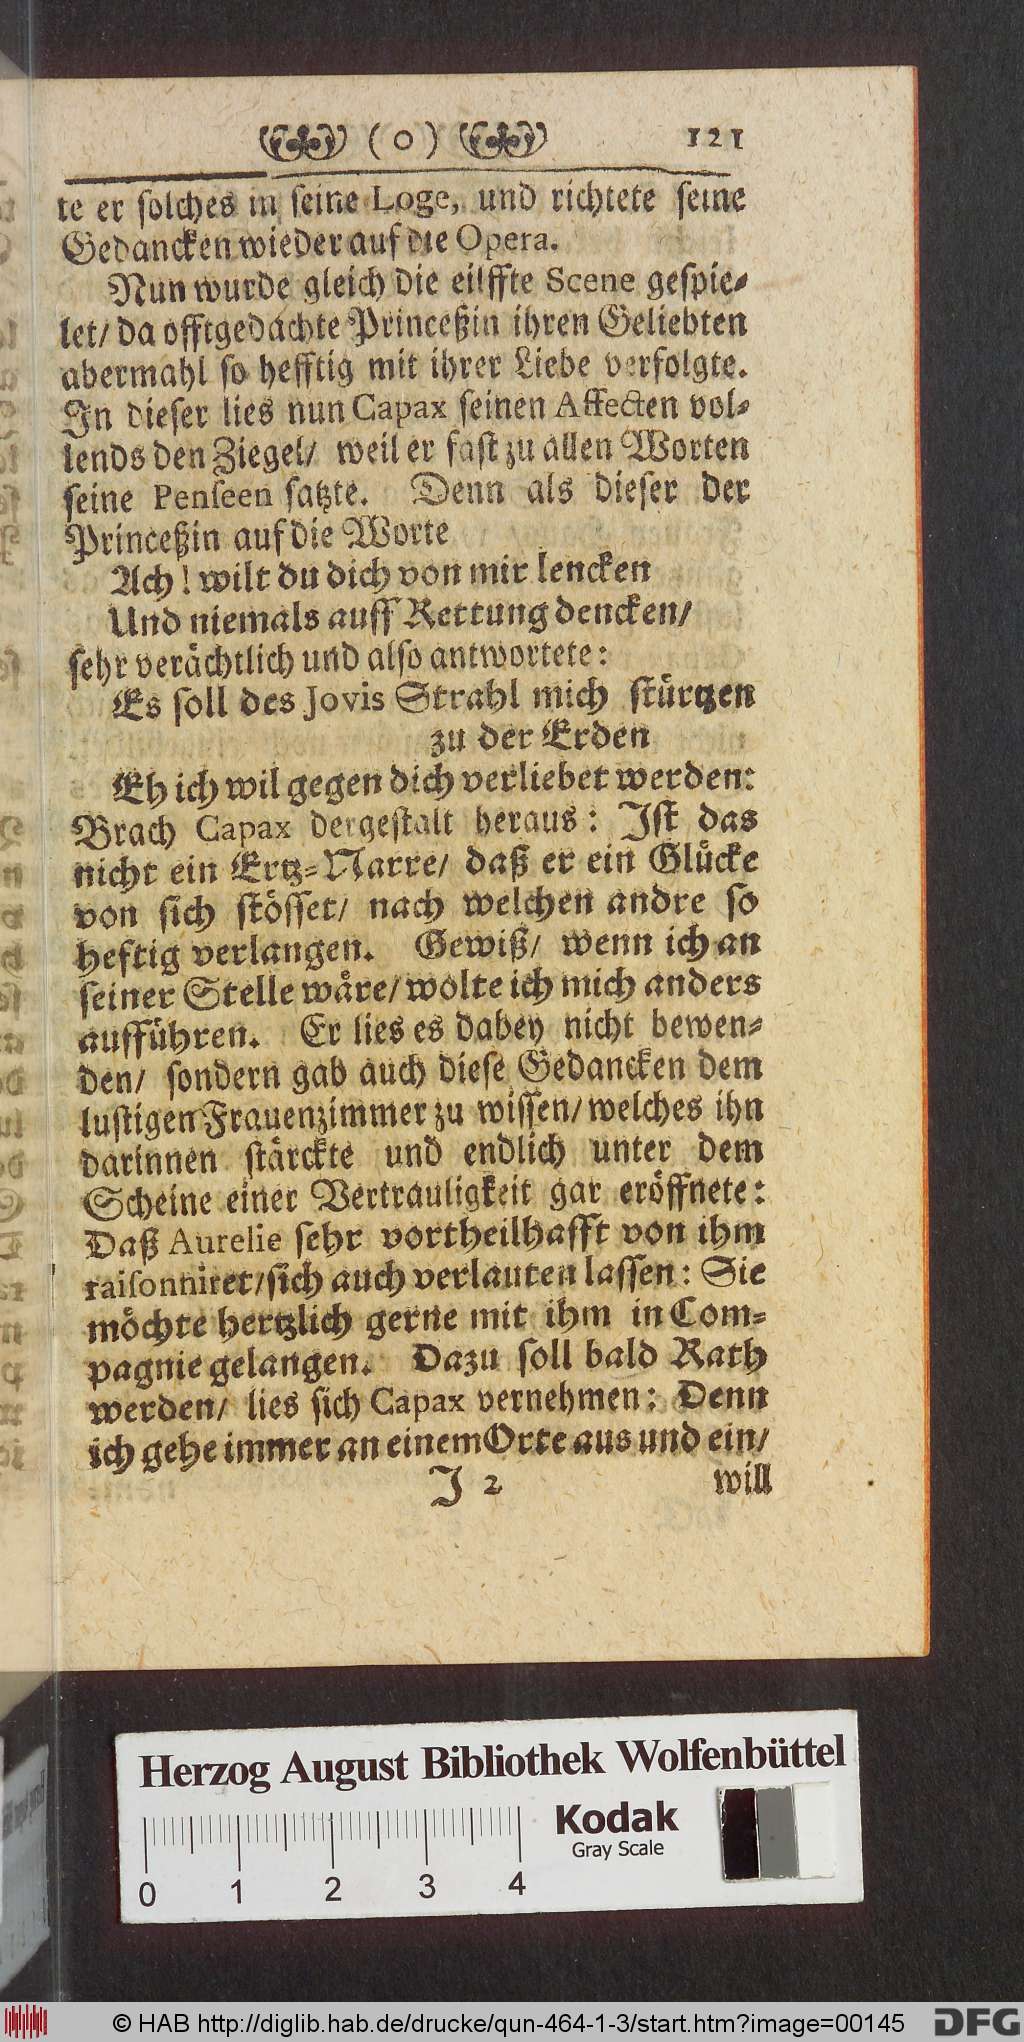 ( o ) 121
te er solches in seine Loge, und richtete seine
Gedancken wieder auf die Opera.
Nun wurde gleich die eilffte Scene gespie-
let/ da offtgedachte Princeßin ihren Geliebten
abermahl so hefftig mit ihrer Liebe verfolgte.
In dieser lies nun Capax seinen Affecten vol-
lends den Ziegel/ weil er fast zu allen Worten
seine Penseen satzte. Denn als dieser der
Princeßin auf die Worte
Ach! wilt du dich von mir lencken
Und niemals auff Rettung dencken/
sehr verächtlich und also antwortete:
Es soll des Jovis Strahl mich stürtzen
zu der Erden
Eh ich wil gegen dich verliebet werden:
Brach Capax dergestalt heraus: Ist das
nicht ein Ertz-Narre/ daß er ein Glücke
von sich stösset/ nach welchen andre so
heftig verlangen. Gewiß/ wenn ich an
seiner Stelle wäre/ wolte ich mich anders
aufführen. Er lies es dabey nicht bewen-
den/ sondern gab auch diese Gedancken dem
lustigen Frauenzimmer zu wissen/ welches ihn
darinnen stärckte und endlich unter dem
Scheine einer Vertrauligkeit gar eröffnete:
Daß Aurelie sehr vortheilhafft von ihm
raisonniret/ sich auch verlauten lassen: Sie
möchte hertzlich gerne mit ihm in Com-
pagnie gelangen. Dazu soll bald Rath
werden/ lies sich Capax vernehmen: Denn
ich gehe immer an einem Orte aus und ein/
J 2 will
Herzog August Bibliothek Wolfenbüttel
Kodak
Gray Scale
0 1 2 3 4
© HAB http://diglib.hab.de/drucke/qun-464-1-3/start.htm?image=00145
DFG